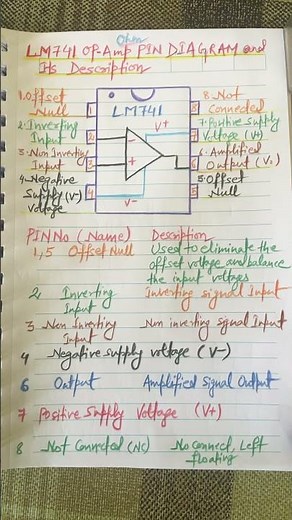 Ohm
LM741 OP-Amp PIN DIAGRAM and
Its Description
1. Offset
Null
2. Inverting
Input
3. Non Inverting
Input
4. Negative
Supply (V-)
Voltage
1
2
3
4
LM741
V+
-
+
V-
8
7
6
5
8. Not
Connected
7. Positive Supply
Voltage (V+)
6. Amplified
Output (V₀)
5. Offset
Null
PIN No (Name) Description
1,5 Offset Null Used to eliminate the
offset voltage and balance
the input voltages
2 Inverting Inverting signal Input
Input
3 Non Inverting Non inverting signal Input
Input
4 Negative supply voltage (V-)
6 Output Amplified Signal Output
7 Positive Supply Voltage (V+)
8 Not Connected (NC) No connect, Left
floating